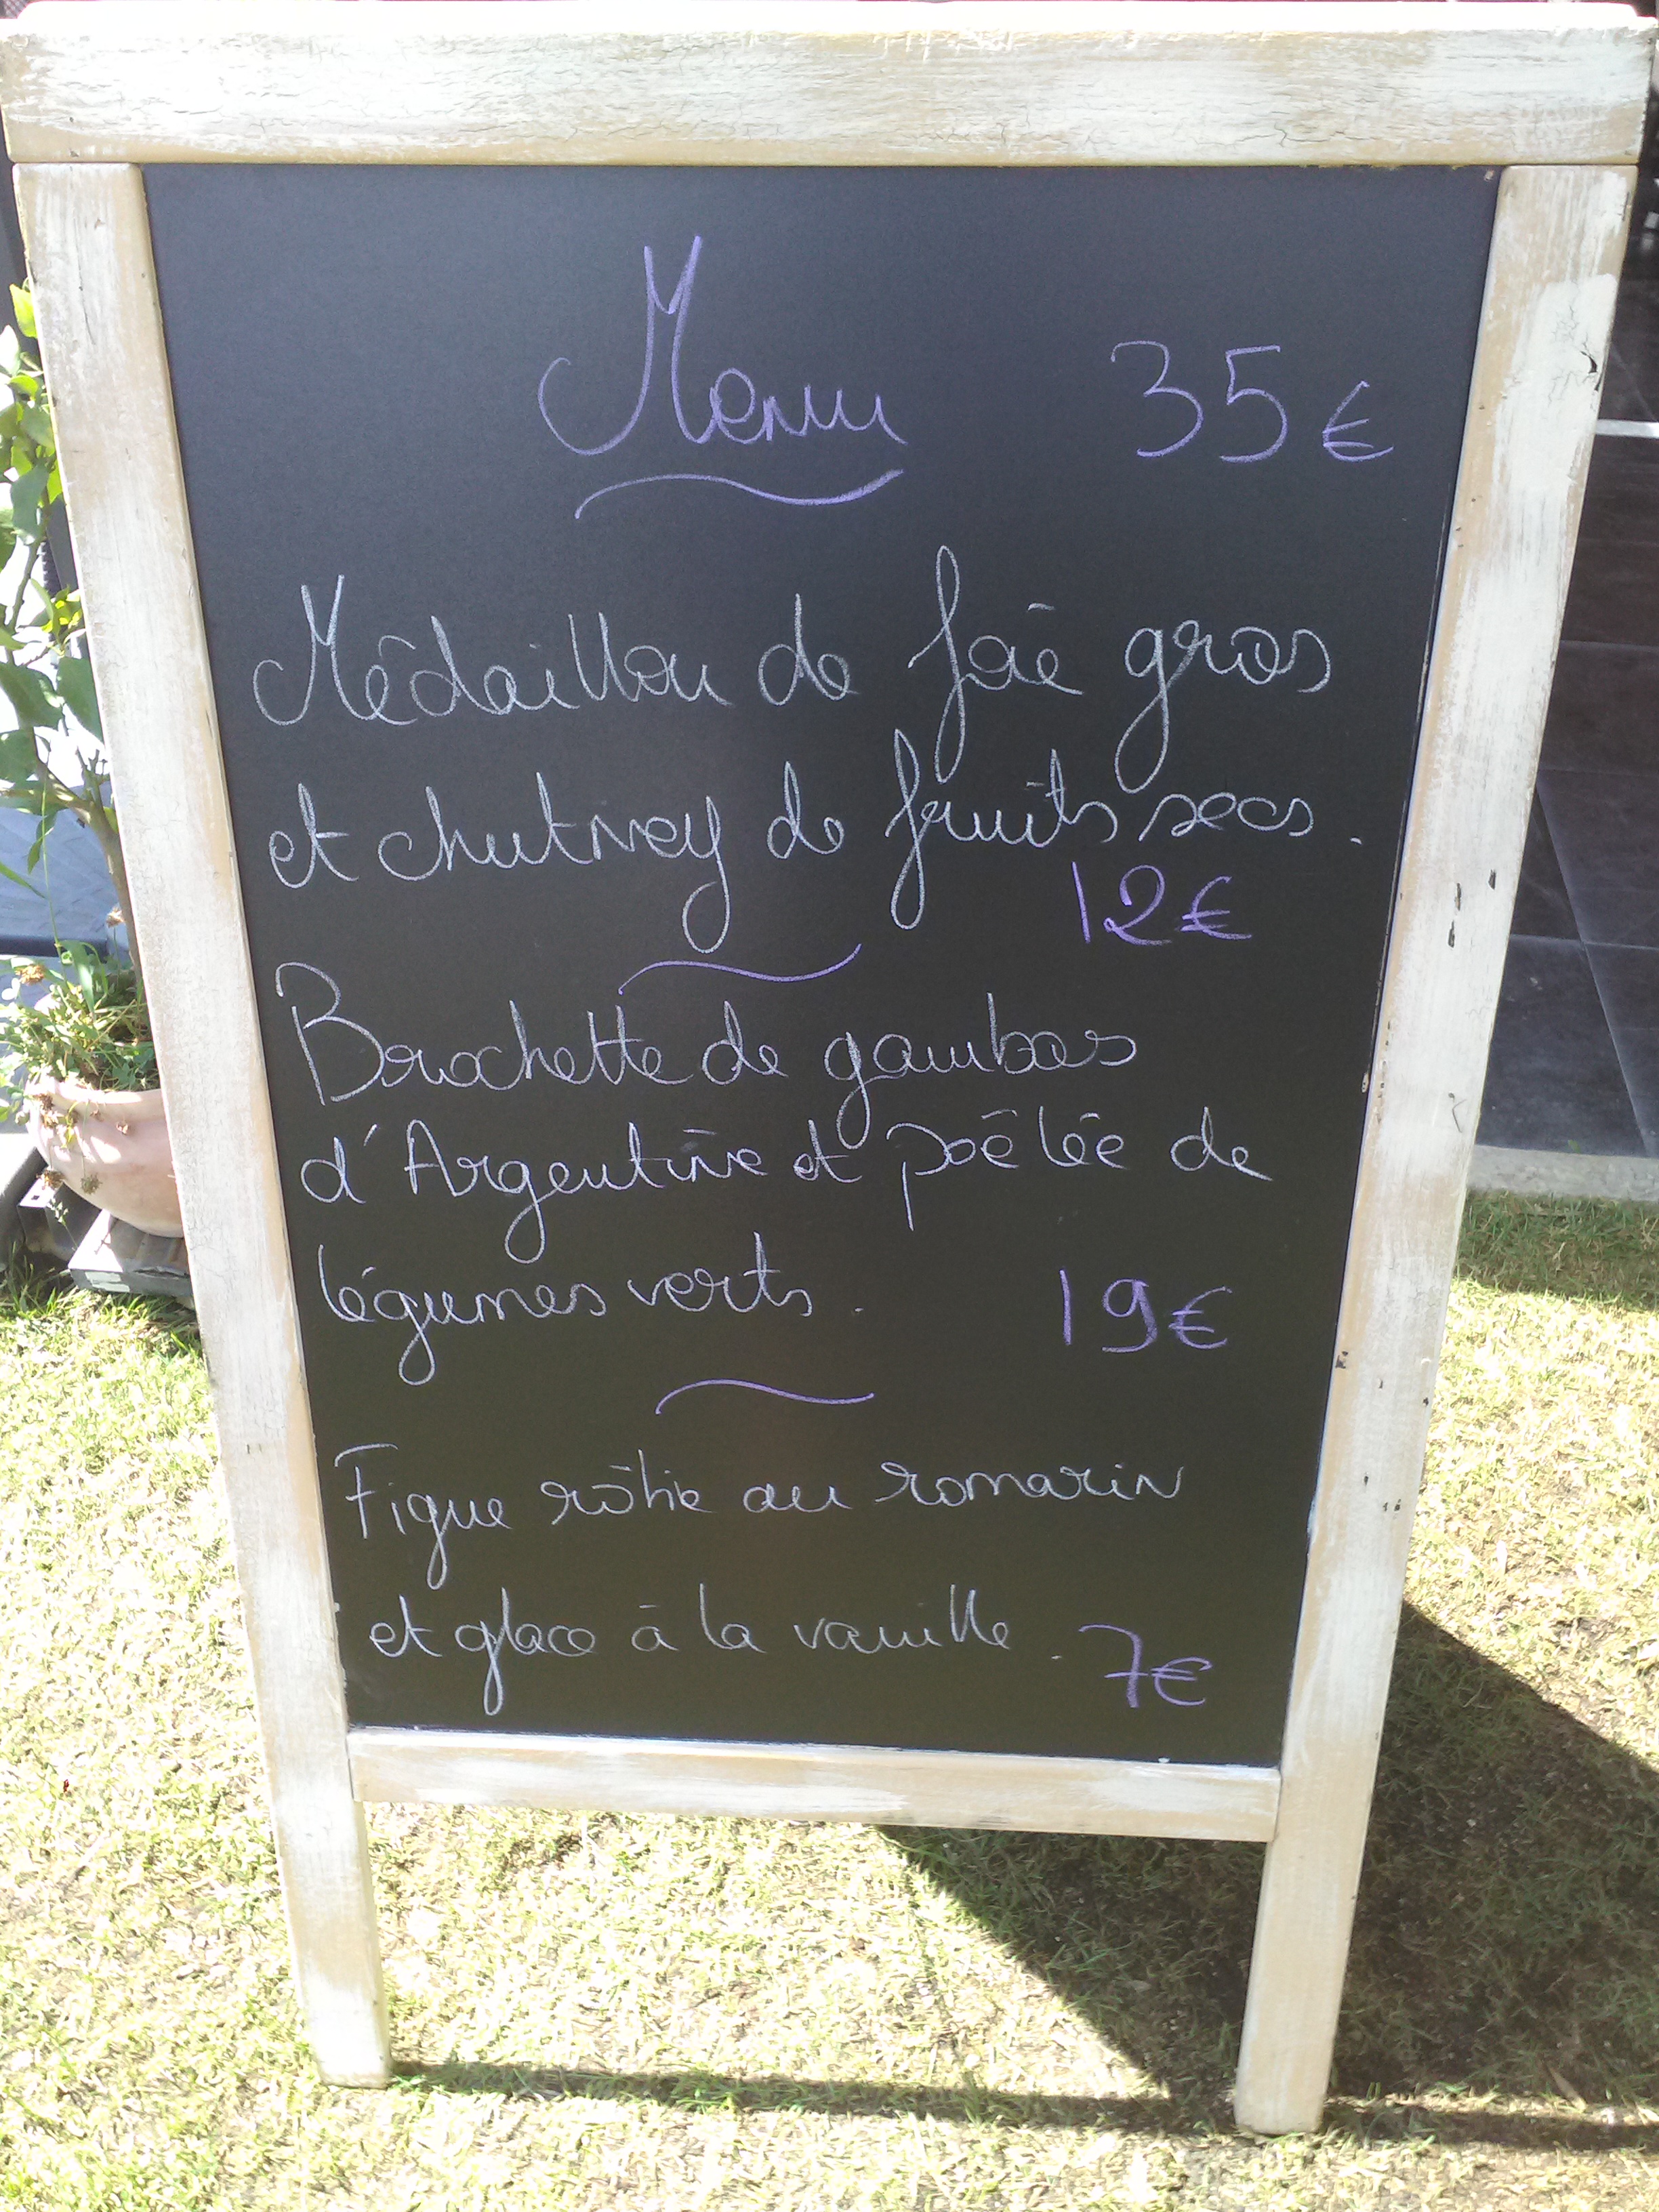 Menu 35€
Médaillon de foie gras
et chutney de fruits secs.
12€
Brochette de gambas
d'Argentine et poêlée de
légumes verts. 19€
Figue rôtie au romarin
et glace à la vanille. 7€